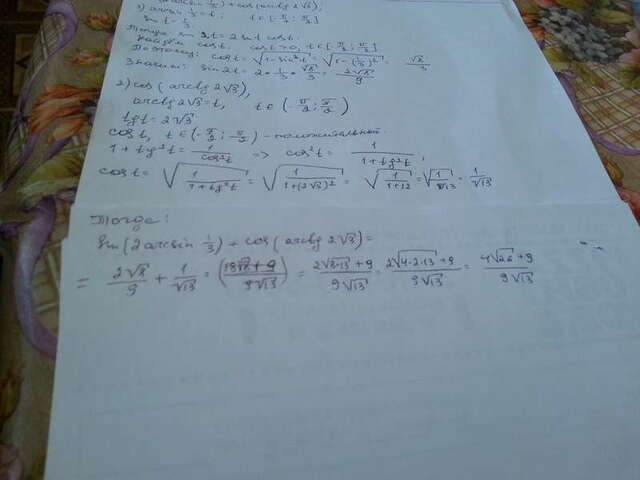 arcsin 1/3) + cos(arctg 2√3);
1) arcsin 1/3 = t; t ∈ [-π/2; π/2]
sin t = 1/3
Тогда sin 2t = 2 sin t cos t.
Найдём cos t. cos t > 0, t ∈ [-π/2; π/2]
Поэтому: cos t = √(1 - sin²t) = √(1 - (1/3)²) = √8/3
Значит: sin 2t = 2 · 1/3 · √8/3 = 2√8/9
2) cos (arctg 2√3),
arctg 2√3 = t, t ∈ (-π/2; π/2)
tg t = 2√3
cos t, t ∈ (-π/2; π/2) - положительный
1 + tg²t = 1/cos²t => cos²t = 1/(1 + tg²t),
cos t = √(1/(1 + tg²t)) = √(1/(1 + (2√3)²)) = √(1/(1+12)) = √(1/13) = 1/√13
Тогда:
sin(2 arcsin 1/3) + cos(arctg 2√3) =
= 2√8/9 + 1/√13 = = (2√(8·13) + 9)/(9√13) = (2√(4·2·13) + 9)/(9√13) = (4√26 + 9)/(9√13)